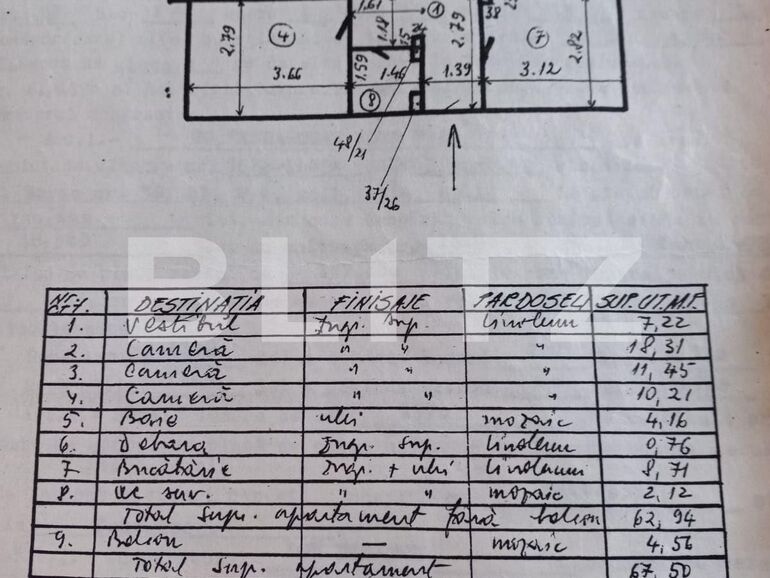 1.61
1
2.79
4
1.18
15
2.79
38
7
2.82
3.66
1.59
1.46
1.39
3.12
8
48/21
37/26
BLITZ
Nr. crt. DESTINAȚIA FINISAJE PARDOSELI SUP. UT. M.P.
1. Vestibul Ingr. Sup. linoleum 7,22
2. Cameră " " " 18,31
3. Cameră " " " 11,45
4. Cameră " " " 10,21
5. Baie ulei mozaic 4,16
6. Debara Ingr. Sup. linoleum 0,76
7 Bucătărie Ingr. + ulei linoleum 8,71
8. WC serv. " " mozaic 2,12
Total Supr. apartament fără balcon 62,94
9. Balcon — mozaic 4,56
Total Sup. apartament 67,50